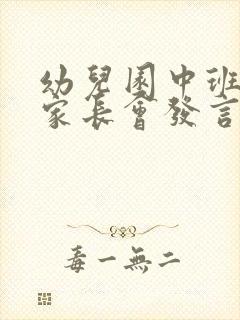 幼兒園中班
家長會發言
毒一無二